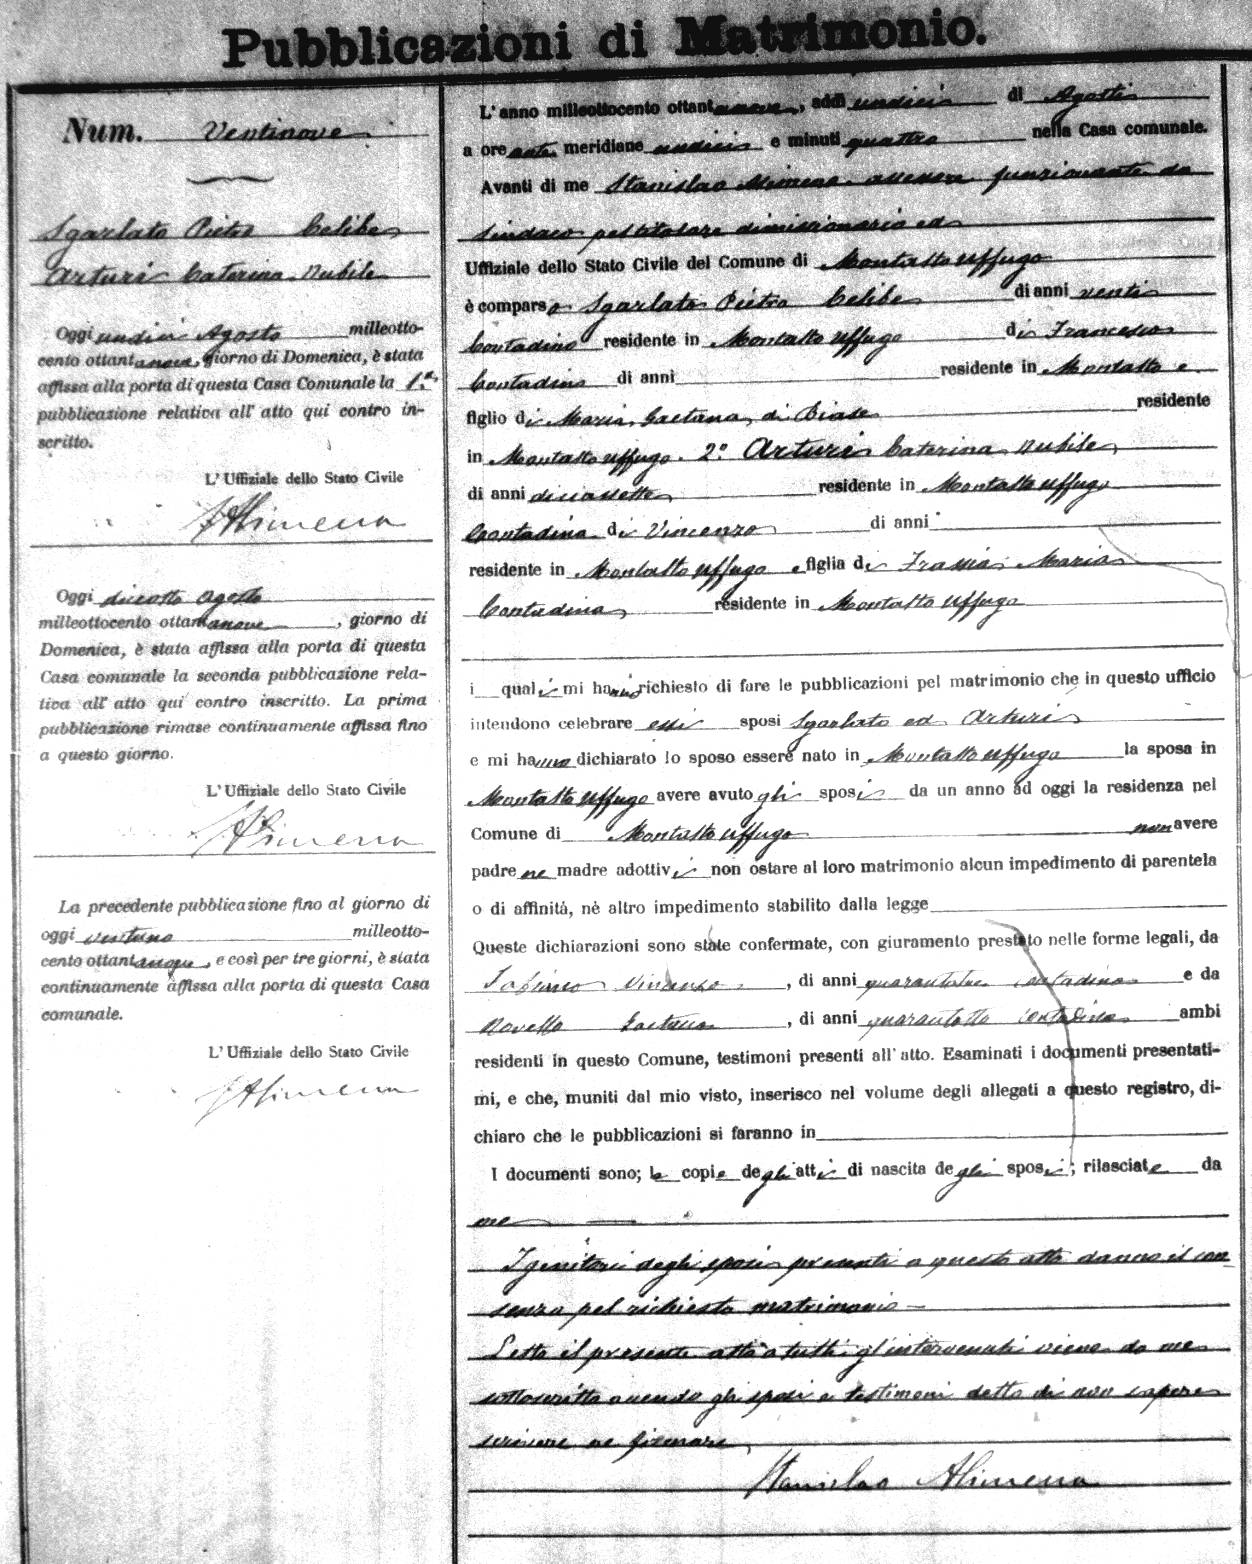 Pubblicazioni di Matrimonio.
Num. Ventinove
Sgarlato Pietro Celibe
Arturi Caterina Nubile
Oggi undici Agosto milleotto-
cento ottantanove, giorno di Domenica, è stata
affissa alla porta di questa Casa Comunale la 1.a
pubblicazione relativa all' atto qui contro in-
scritto.
L' Uffiziale dello Stato Civile
SAlimena
Oggi diciotto Agosto
milleottocento ottantanove, giorno di
Domenica, è stata affissa alla porta di questa
Casa comunale la seconda pubblicazione rela-
tiva all' atto qui contro inscritto. La prima
pubblicazione rimase continuamente affissa fino
a questo giorno.
L' Uffiziale dello Stato Civile
SAlimena
La precedente pubblicazione fino al giorno di
oggi ventuno milleotto-
cento ottantanove, e così per tre giorni, è stata
continuamente affissa alla porta di questa Casa
comunale.
L' Uffiziale dello Stato Civile
SAlimena
L' anno milleottocento ottantanove, addì undici di Agosto
a ore anti meridiane undici e minuti quattro nella Casa comunale.
Avanti di me Stanislao Alimena assessore funzionante da
sindaco pel titolare dimissionario ed
Uffiziale dello Stato Civile del Comune di Montalto Uffugo
è comparso Sgarlato Pietro Celibe di anni venti
Contadino residente in Montalto Uffugo di Francesco
Contadino di anni residente in Montalto e
figlio di Maria Gaetana di Biase residente
in Montalto Uffugo. 2° Arturi Caterina Nubile
di anni diciassette residente in Montalto Uffugo
Contadina di Vincenzo di anni
residente in Montalto Uffugo e figlia di Maria
Contadina residente in Montalto Uffugo
i quali mi hanno richiesto di fare le pubblicazioni pel matrimonio che in questo ufficio
intendono celebrare essi sposi Sgarlato ed Arturi
e mi hanno dichiarato lo sposo essere nato in Montalto Uffugo la sposa in
Montalto Uffugo avere avuto gli sposi da un anno ad oggi la residenza nel
Comune di Montalto Uffugo non avere
padre ne madre adottivi non ostare al loro matrimonio alcun impedimento di parentela
o di affinità, nè altro impedimento stabilito dalla legge
Queste dichiarazioni sono state confermate, con giuramento prestato nelle forme legali, da
Vincenzo, di anni contadino e da
Novello Gaetano, di anni quarantotto contadino ambi
residenti in questo Comune, testimoni presenti all' atto. Esaminati i documenti presentati-
mi, e che, muniti dal mio visto, inserisco nel volume degli allegati a questo registro, di-
chiaro che le pubblicazioni si faranno in
I documenti sono; le copie degli atti di nascita degli sposi; rilasciate da
me
I genitori degli sposi presenti a questo atto danno il con-
senso pel richiesto matrimonio
Letto il presente atto a tutti gl'intervenuti viene da me
sottoscritto avendo gli sposi e testimoni detto di non sapere
scrivere ne firmare
Stanislao Alimena